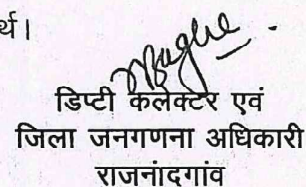 र्थ।
डिप्टी कलेक्टर एवं
जिला जनगणना अधिकारी
राजनांदगांव